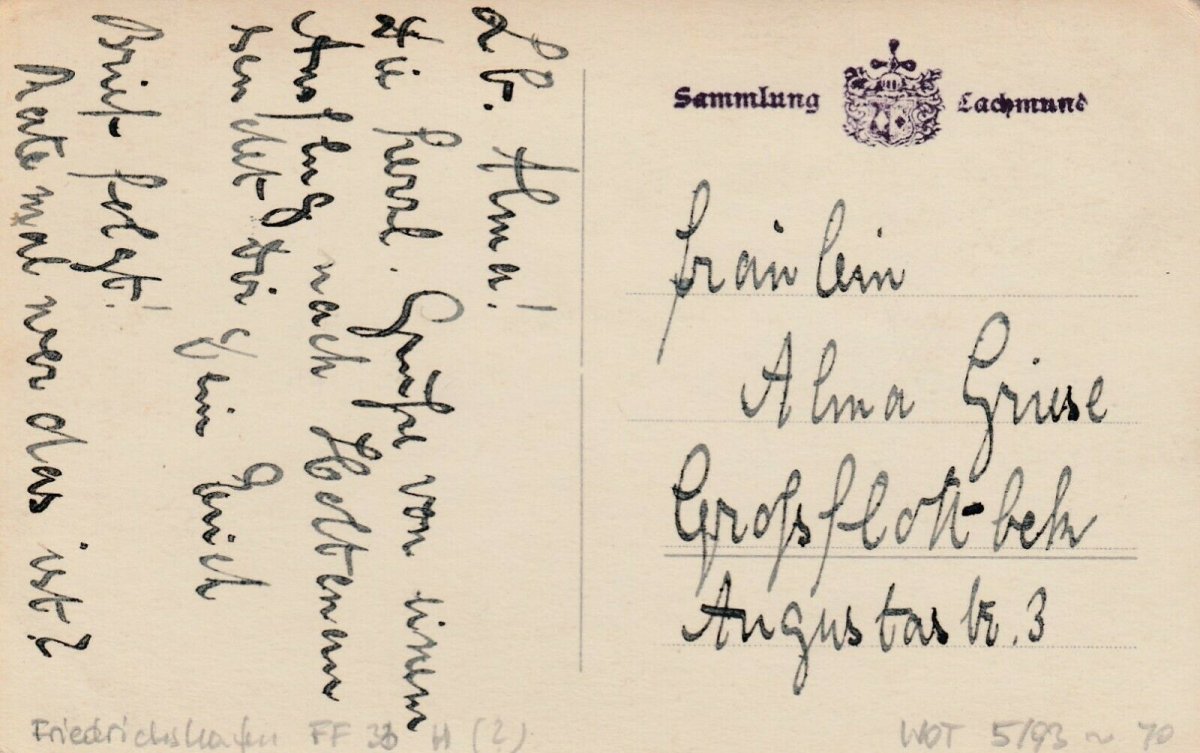 Lb. Alma!
Die herzl. Grüße von einem
Ausflug nach Holtenau
sendet Dir
Brief folgt!
Rate mal wer das ist?
Sammlung Lachmund
Fräulein
Alma Griese
Grossflottbek
Augustastr. 3
Friedrichshafen FF 33 H (?)
WOT 5/93 ~ 70